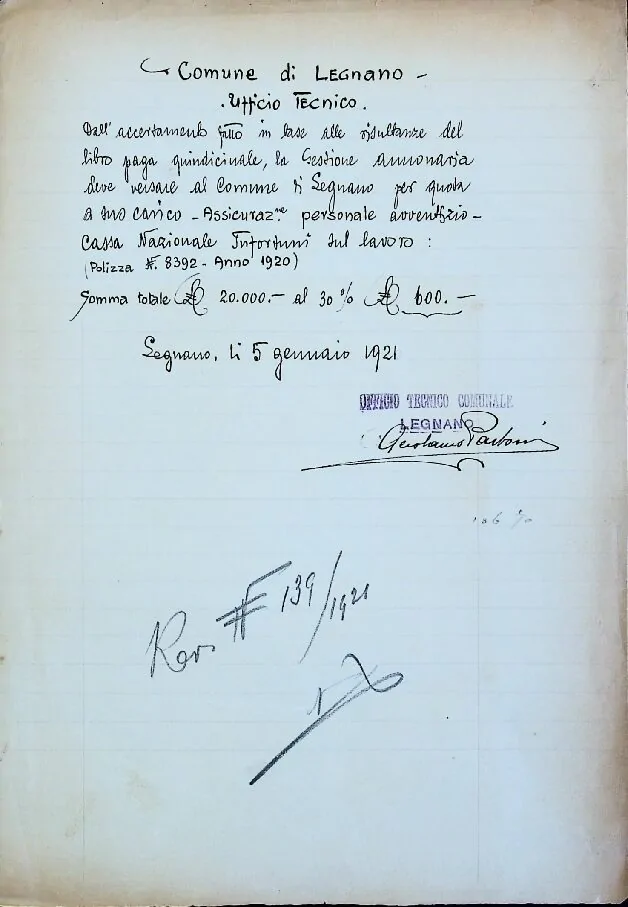 Comune di Legnano -
. Ufficio Tecnico .
Dall'accertamento fatto in base alle risultanze del
libro paga quindicinale, la Gestione annonaria
deve versare al Comune di Legnano per quota
a suo carico - Assicuraz.ne personale avventizio -
Cassa Nazionale Infortuni sul lavoro :
(Polizza N. 8392 - Anno 1920)
Somma totale £ 20.000.- al 30 % £ 600.-
Legnano, li 5 gennaio 1921
UFFICIO TECNICO COMUNALE
LEGNANO
N 139/1921